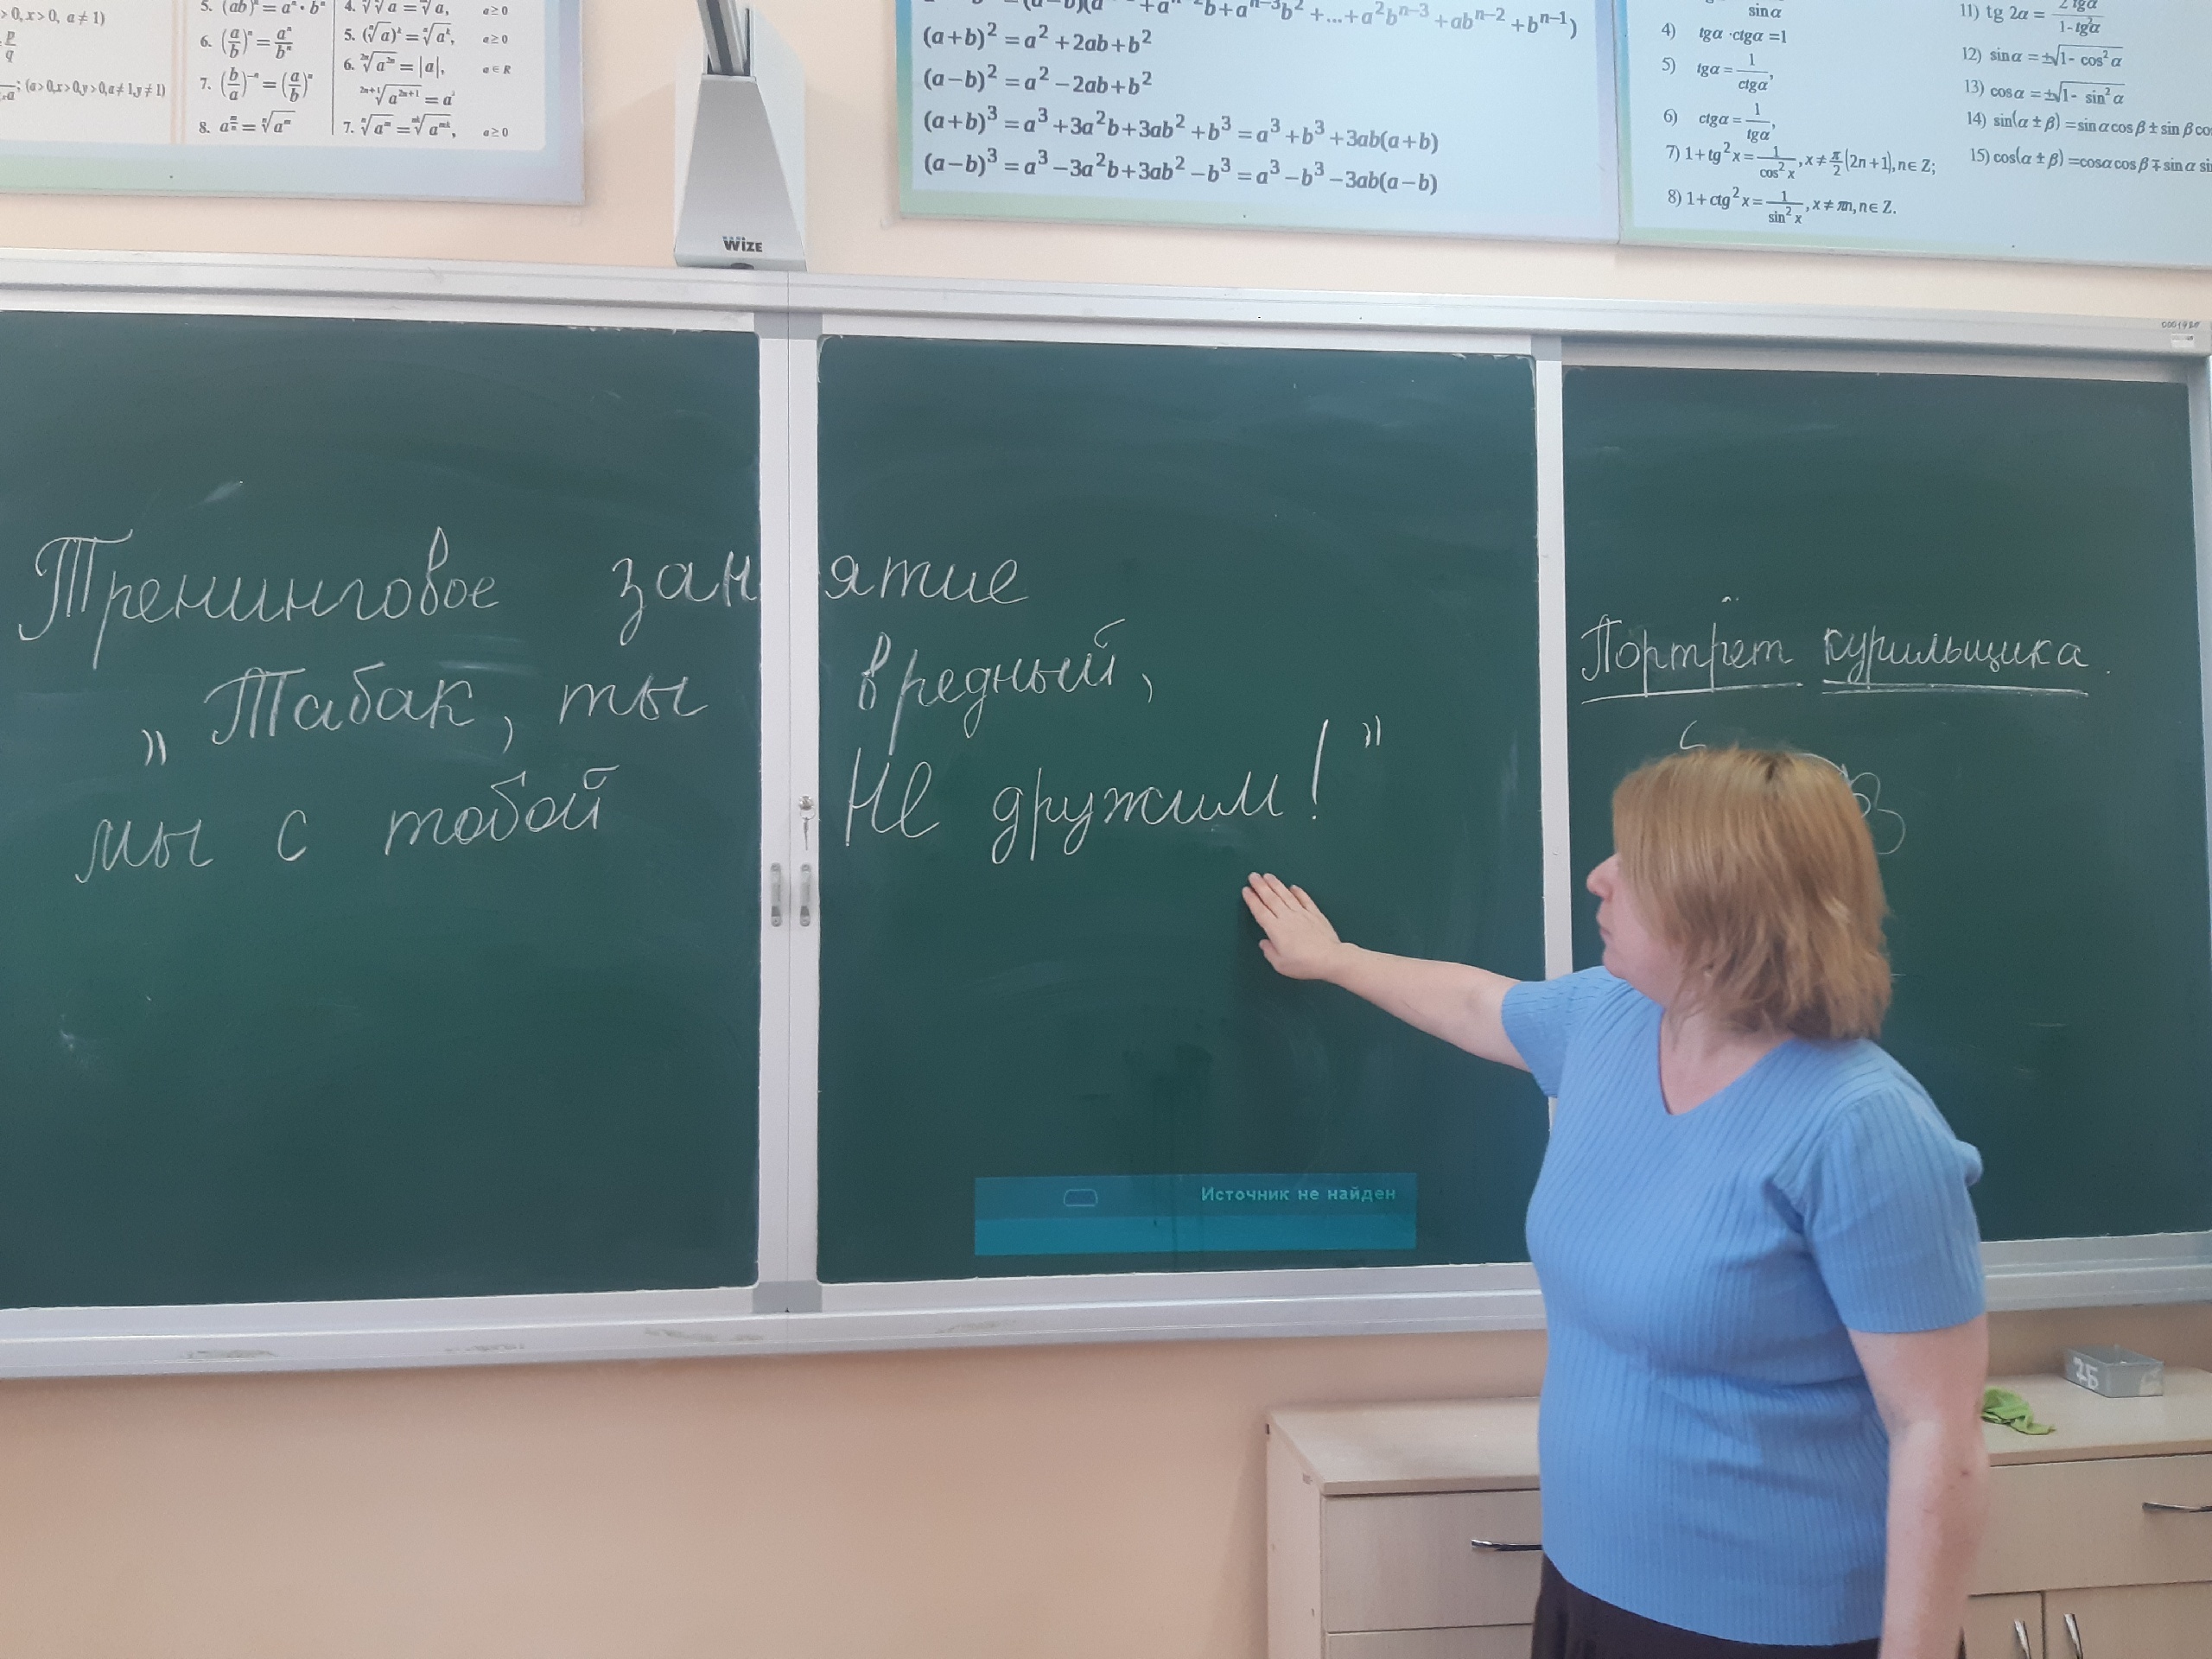 >0, x>0, a≠1)
p/q
; (a>0,x>0,y>0,a≠1,y≠1)
5. (ab)ⁿ = aⁿ • bⁿ
6. (a/b)ⁿ = aⁿ/bⁿ
7. (b/a)⁻ⁿ = (a/b)ⁿ
a≥0
a≥0
6. ²ⁿ√a²ⁿ = |a|, a∈R
a≥0
(a+b)² = a² + 2ab + b²
(a−b)² = a² − 2ab + b²
(a+b)³ = a³ + 3a²b + 3ab² + b³ = a³ + b³ + 3ab(a+b)
(a−b)³ = a³ − 3a²b + 3ab² − b³ = a³ − b³ − 3ab(a−b)
sin α
4) tgα · ctgα = 1
5) tgα = 1/ctgα,
6) ctgα = 1/tgα,
7) 1 + tg²x = 1/cos²x, x ≠ π/2(2n+1), n∈Z;
8) 1 + ctg²x = 1/sin²x, x ≠ πn, n∈Z.
11) tg 2α = 2 tgα/1- tg²α
12) sin α = ±√1- cos²α
13) cos α = ±√1- sin²α
14) sin(α ± β) = sin α cos β ± sin β co
15) cos(α ± β) = cosα cos β ∓ sin α si
WIZE
Тренинговое занятие
„ Табак, ты вредный,
мы с тобой Не дружим! "
Портрет курильщика.
Источник не найден
7Б